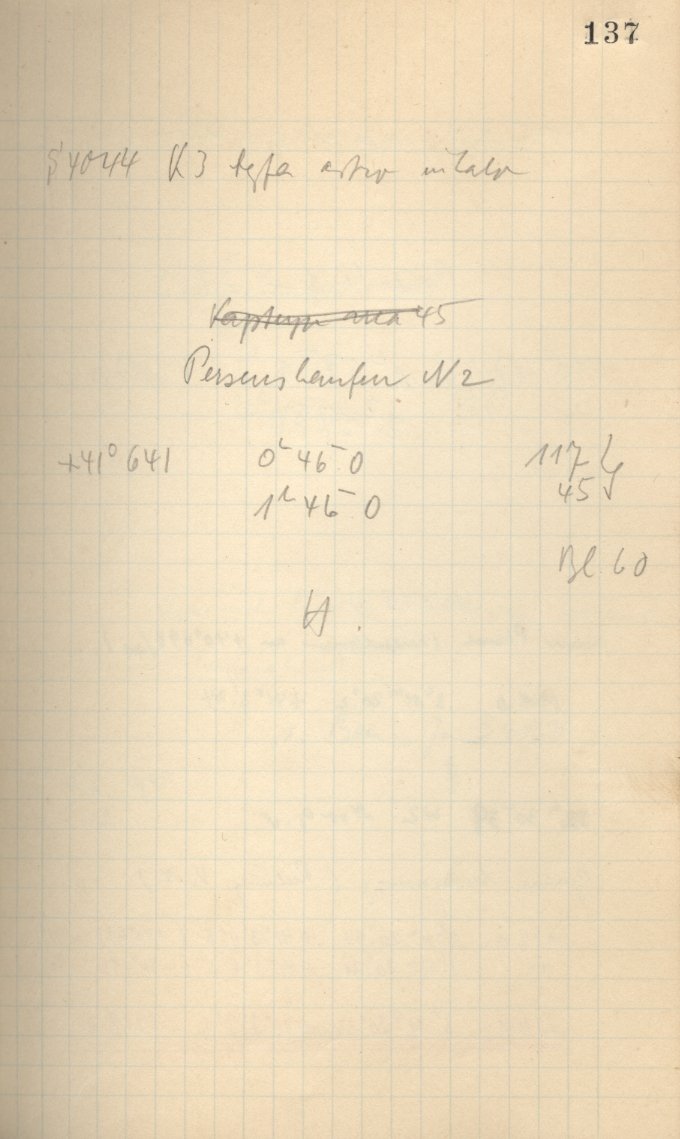 137
4044 K3
Kapteyn area 45
Persenshaufen N2
+41° 641 0h 46m 0 117
1h 46m 0 45
Bl 60